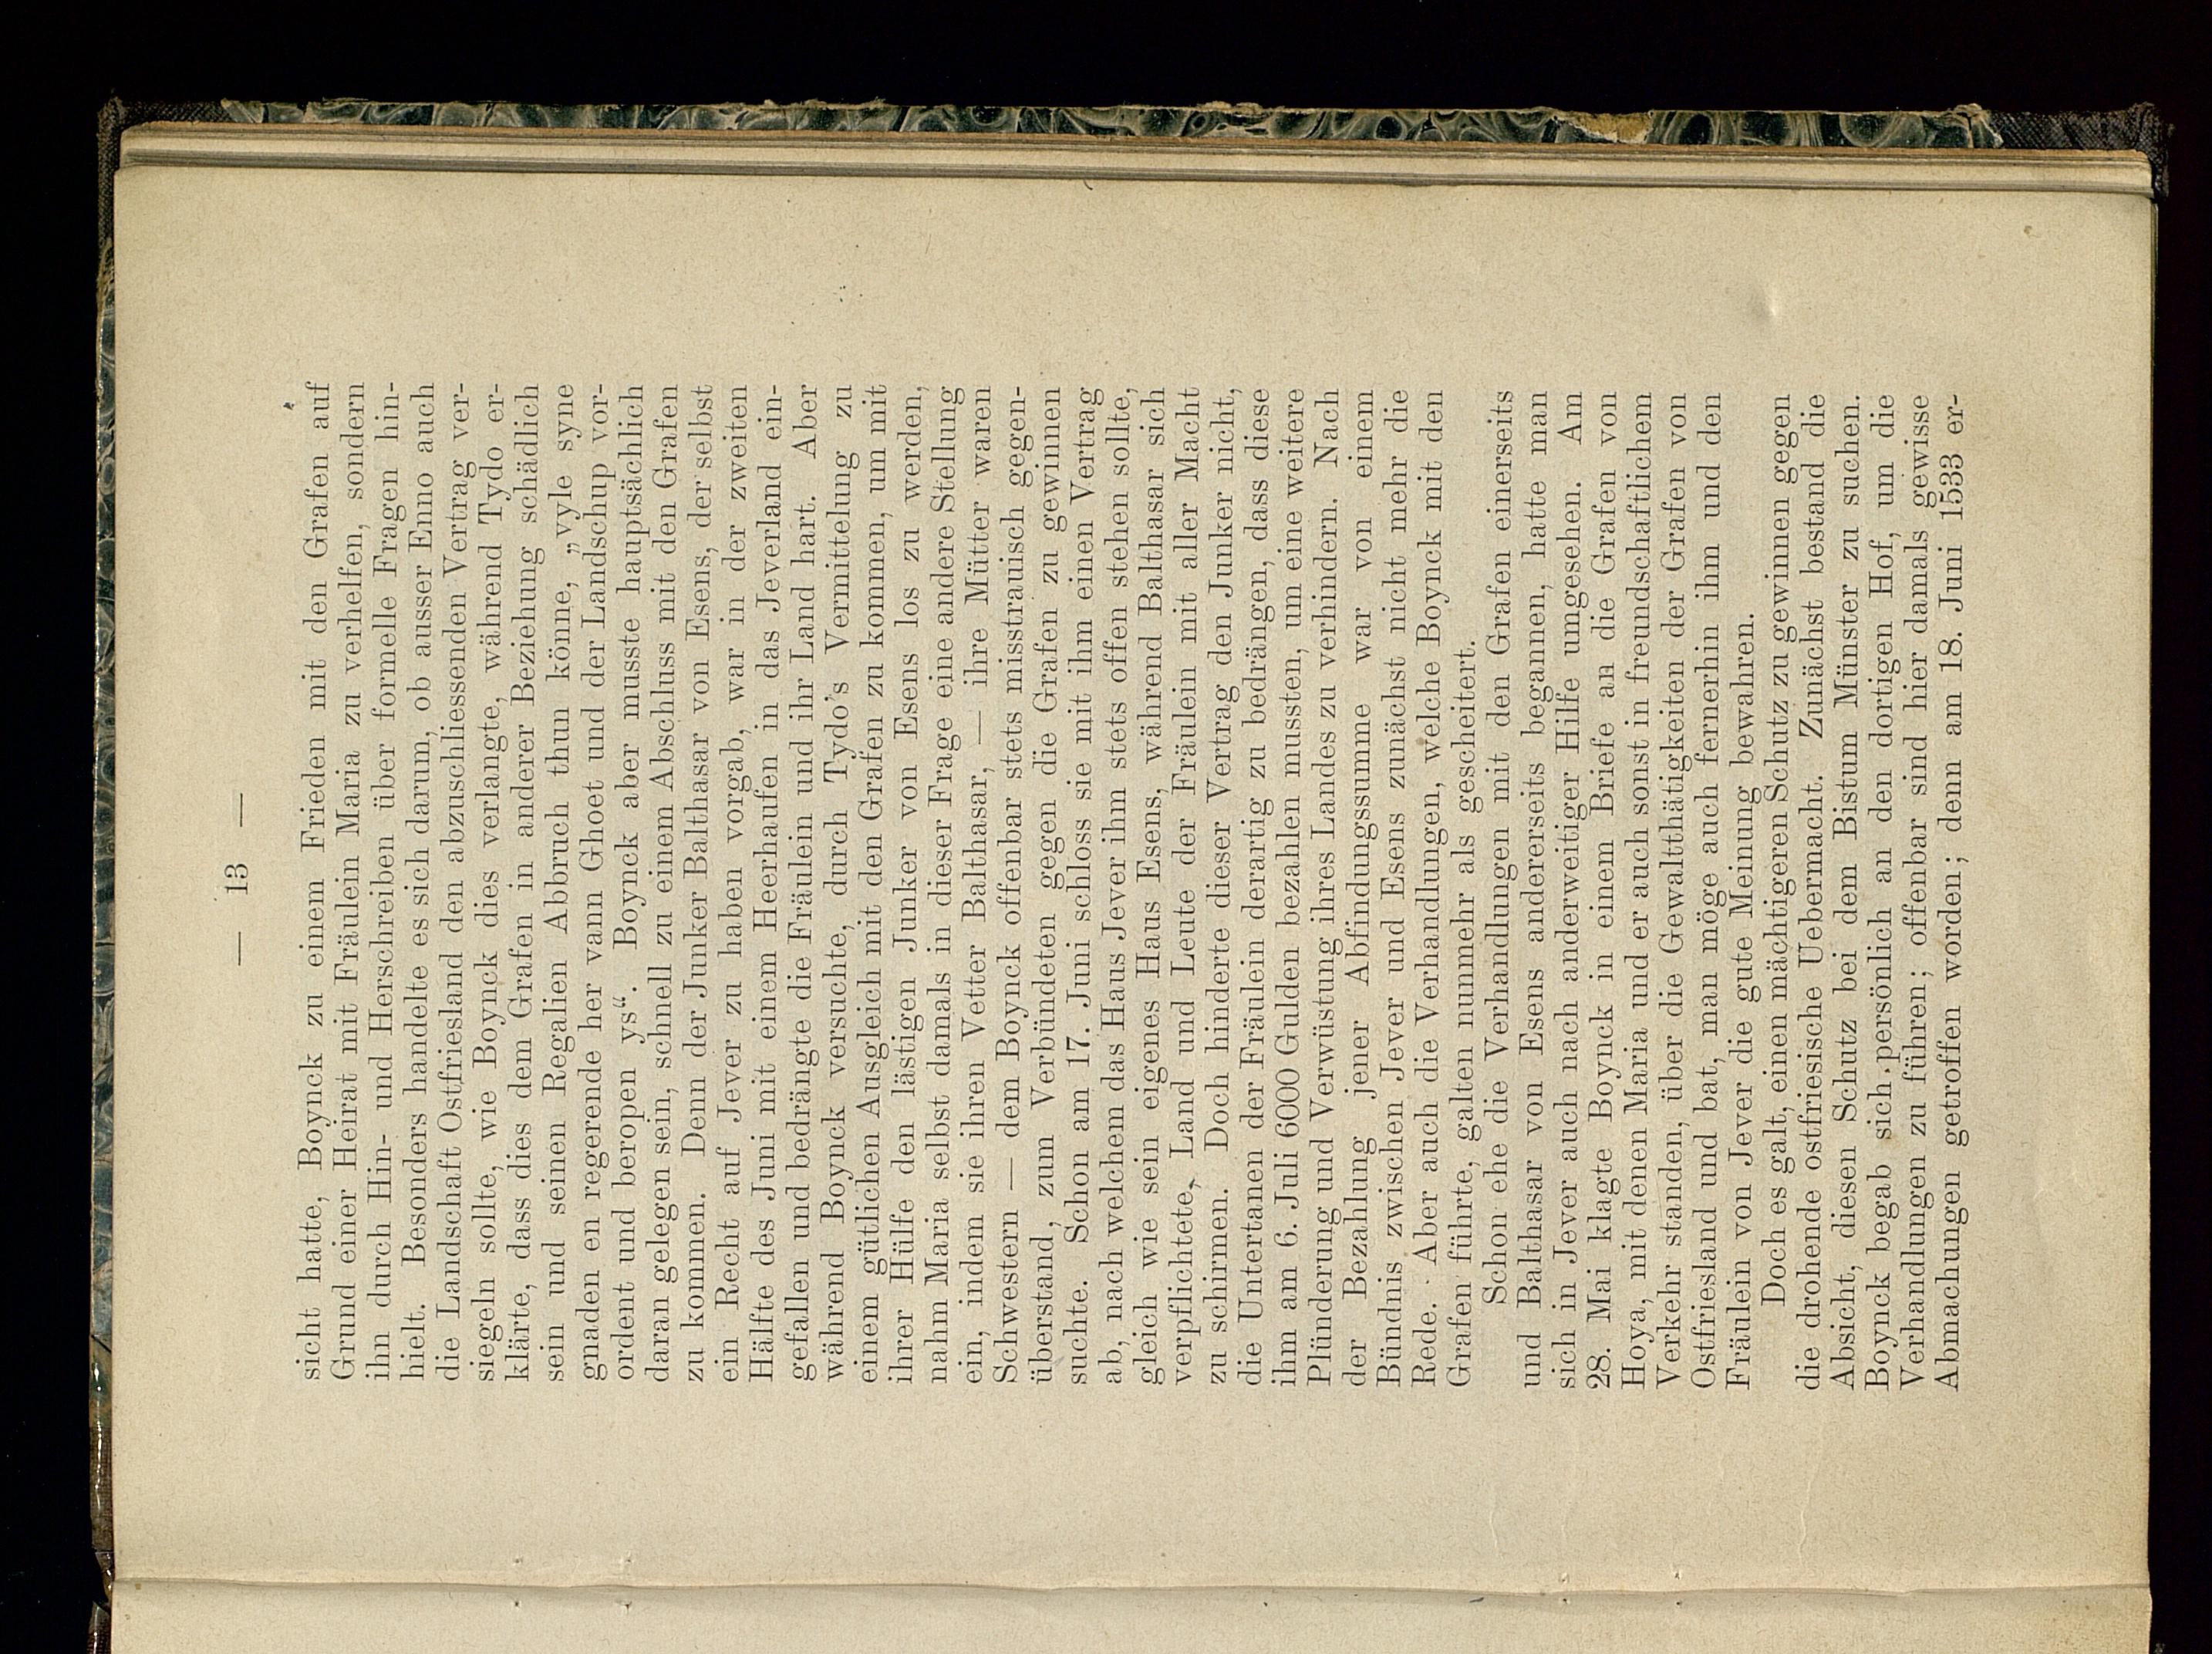 — 13 —
sicht hatte, Boynck zu einem Frieden mit den Grafen auf
Grund einer Heirat mit Fräulein Maria zu verhelfen, sondern
ihn durch Hin- und Herschreiben über formelle Fragen hin-
hielt. Besonders handelte es sich darum, ob ausser Enno auch
die Landschaft Ostfriesland den abzuschliessenden Vertrag ver-
siegeln sollte, wie Boynck dies verlangte, während Tydo er-
klärte, dass dies dem Grafen in anderer Beziehung schädlich
sein und seinen Regalien Abbruch thun könne, „vyle syne
gnaden en regerende her vann Ghoet und der Landschup vor-
ordent und beropen ys“. Boynck aber musste hauptsächlich
daran gelegen sein, schnell zu einem Abschluss mit den Grafen
zu kommen. Denn der Junker Balthasar von Esens, der selbst
ein Recht auf Jever zu haben vorgab, war in der zweiten
Hälfte des Juni mit einem Heerhaufen in das Jeverland ein-
gefallen und bedrängte die Fräulein und ihr Land hart. Aber
während Boynck versuchte, durch Tydo's Vermittelung zu
einem gütlichen Ausgleich mit den Grafen zu kommen, um mit
ihrer Hülfe den lästigen Junker von Esens los zu werden,
nahm Maria selbst damals in dieser Frage eine andere Stellung
ein, indem sie ihren Vetter Balthasar, — ihre Mütter waren
Schwestern — dem Boynck offenbar stets misstrauisch gegen-
überstand, zum Verbündeten gegen die Grafen zu gewinnen
suchte. Schon am 17. Juni schloss sie mit ihm einen Vertrag
ab, nach welchem das Haus Jever ihm stets offen stehen sollte,
gleich wie sein eigenes Haus Esens, während Balthasar sich
verpflichtete, Land und Leute der Fräulein mit aller Macht
zu schirmen. Doch hinderte dieser Vertrag den Junker nicht,
die Untertanen der Fräulein derartig zu bedrängen, dass diese
ihm am 6. Juli 6000 Gulden bezahlen mussten, um eine weitere
Plünderung und Verwüstung ihres Landes zu verhindern. Nach
der Bezahlung jener Abfindungssumme war von einem
Bündnis zwischen Jever und Esens zunächst nicht mehr die
Rede. Aber auch die Verhandlungen, welche Boynck mit den
Grafen führte, galten nunmehr als gescheitert.
Schon ehe die Verhandlungen mit den Grafen einerseits
und Balthasar von Esens andererseits begannen, hatte man
sich in Jever auch nach anderweitiger Hilfe umgesehen. Am
28. Mai klagte Boynck in einem Briefe an die Grafen von
Hoya, mit denen Maria und er auch sonst in freundschaftlichem
Verkehr standen, über die Gewaltthätigkeiten der Grafen von
Ostfriesland und bat, man möge auch fernerhin ihm und den
Fräulein von Jever die gute Meinung bewahren.
Doch es galt, einen mächtigeren Schutz zu gewinnen gegen
die drohende ostfriesische Uebermacht. Zunächst bestand die
Absicht, diesen Schutz bei dem Bistum Münster zu suchen.
Boynck begab sich persönlich an den dortigen Hof, um die
Verhandlungen zu führen; offenbar sind hier damals gewisse
Abmachungen getroffen worden; denn am 18. Juni 1533 er-